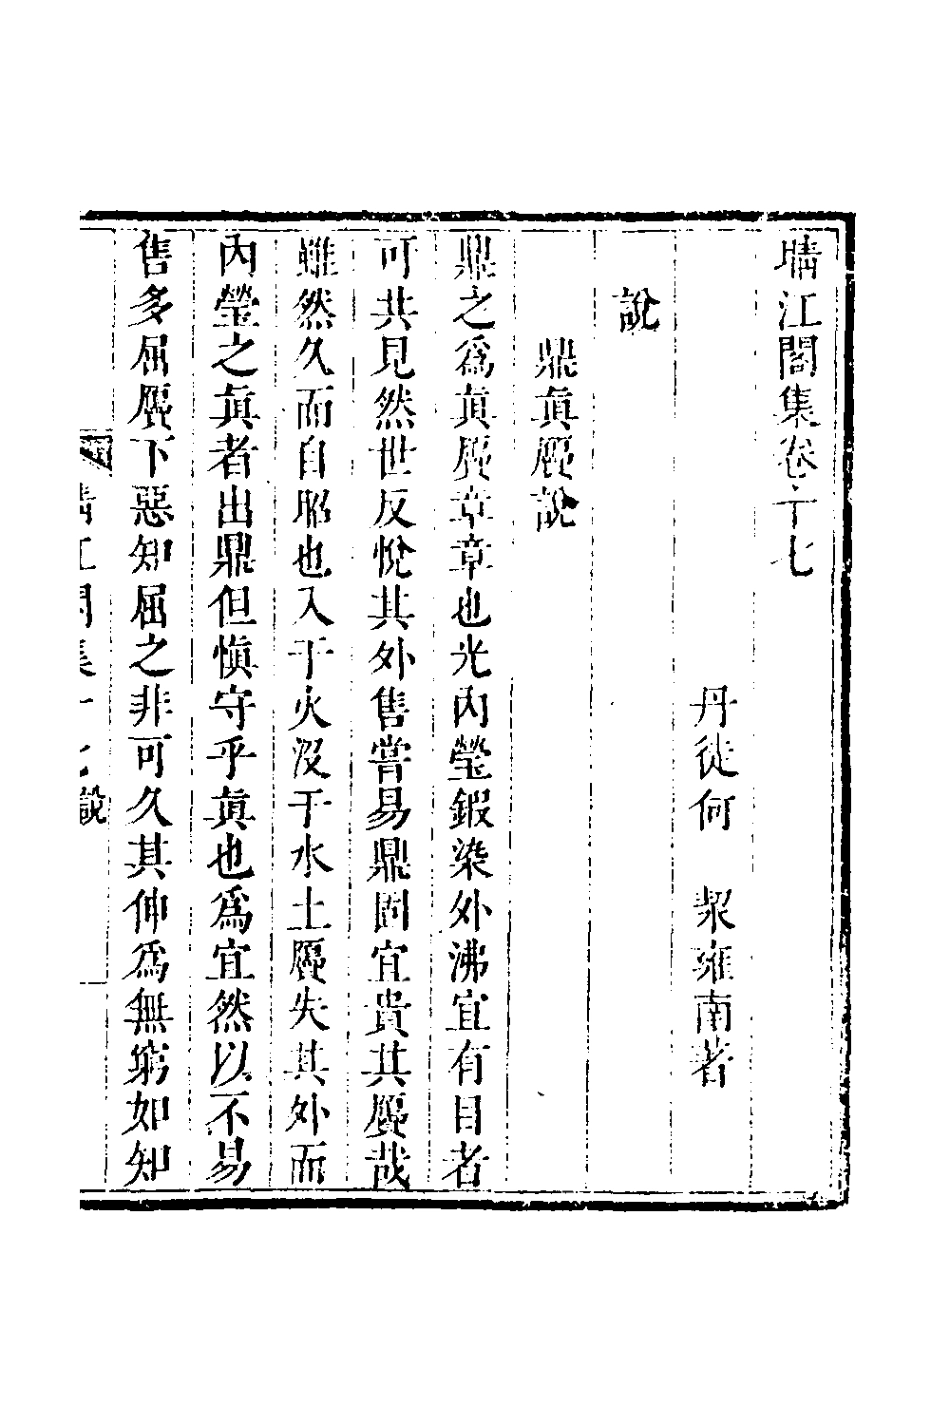 晴江閣集卷十七
丹徒何 絜雍南著
說
鼎真贋說
鼎之爲眞贋章章也光內瑩鍜染外沸宜有目者
可共見然世反悅其外售嘗易鼎固宜貴其贋哉
雖然久而自昭也入于火沒于水土贋失其外而
內瑩之眞者出鼎但愼守乎眞也爲宜然以不易
售多屈贋下惡知屈之非可久其伸爲無窮如知
晴江閣集十七說